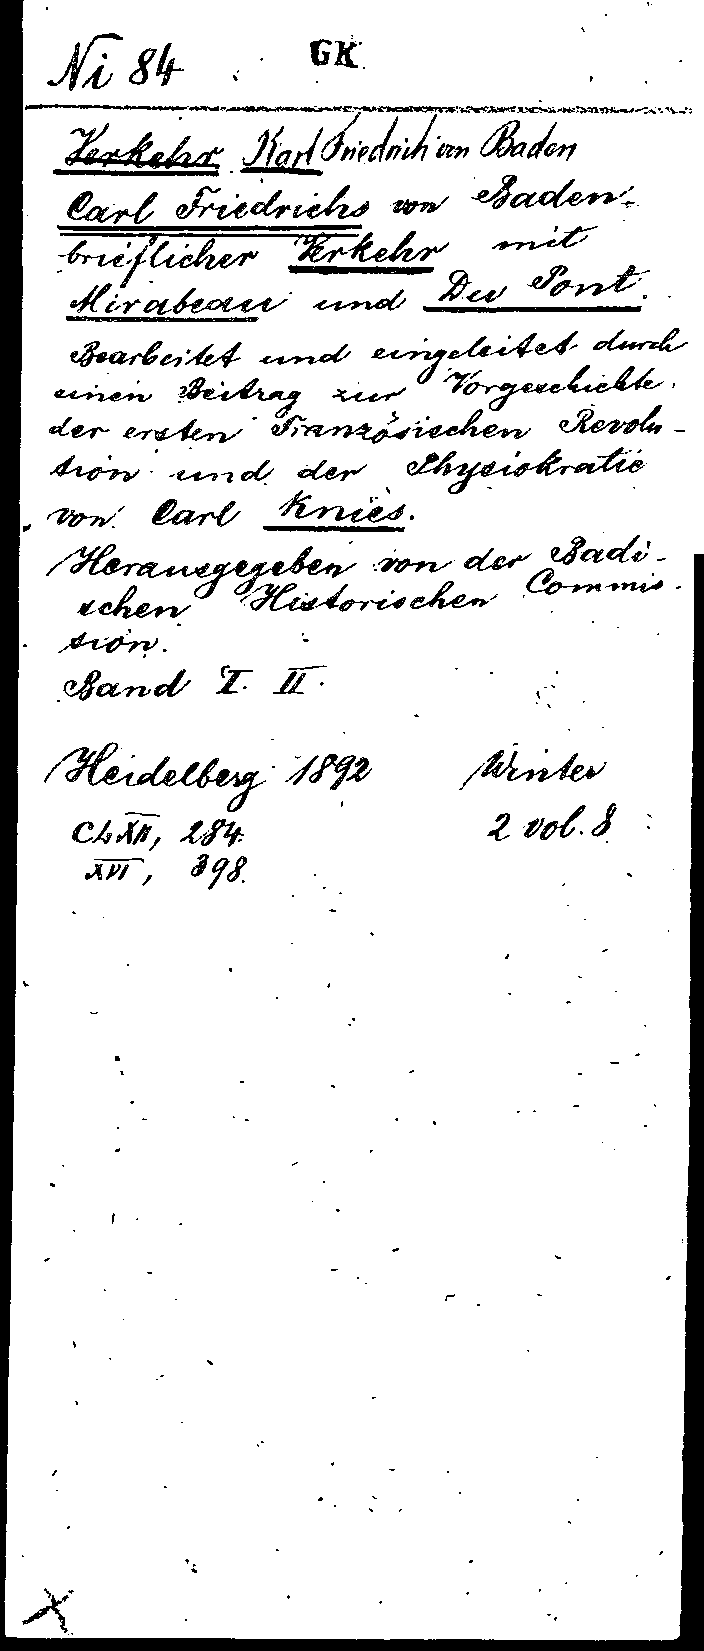 Ni 84 GK
Verkehr Karl Friedrich von Baden
Carl Friedrichs von Baden
brieflicher Verkehr mit
Mirabeau und Du Pont.
Bearbeitet und eingeleitet durch
einen Beitrag zur Vorgeschichte
der ersten Französischen Revolu-
tion und der Physiokratie
von Carl Knies.
Herausgegeben von der Badi-
schen Historischen Commis-
sion.
Band I. II.
Heidelberg 1892 Winter
284. 2 vol. 8
XVI, 398.